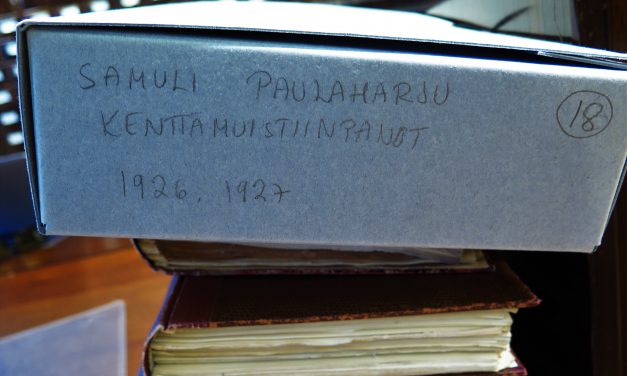 SAMULI PAULAHARJU
18
KENTTAMUISTIINPANOT
1926, 1927